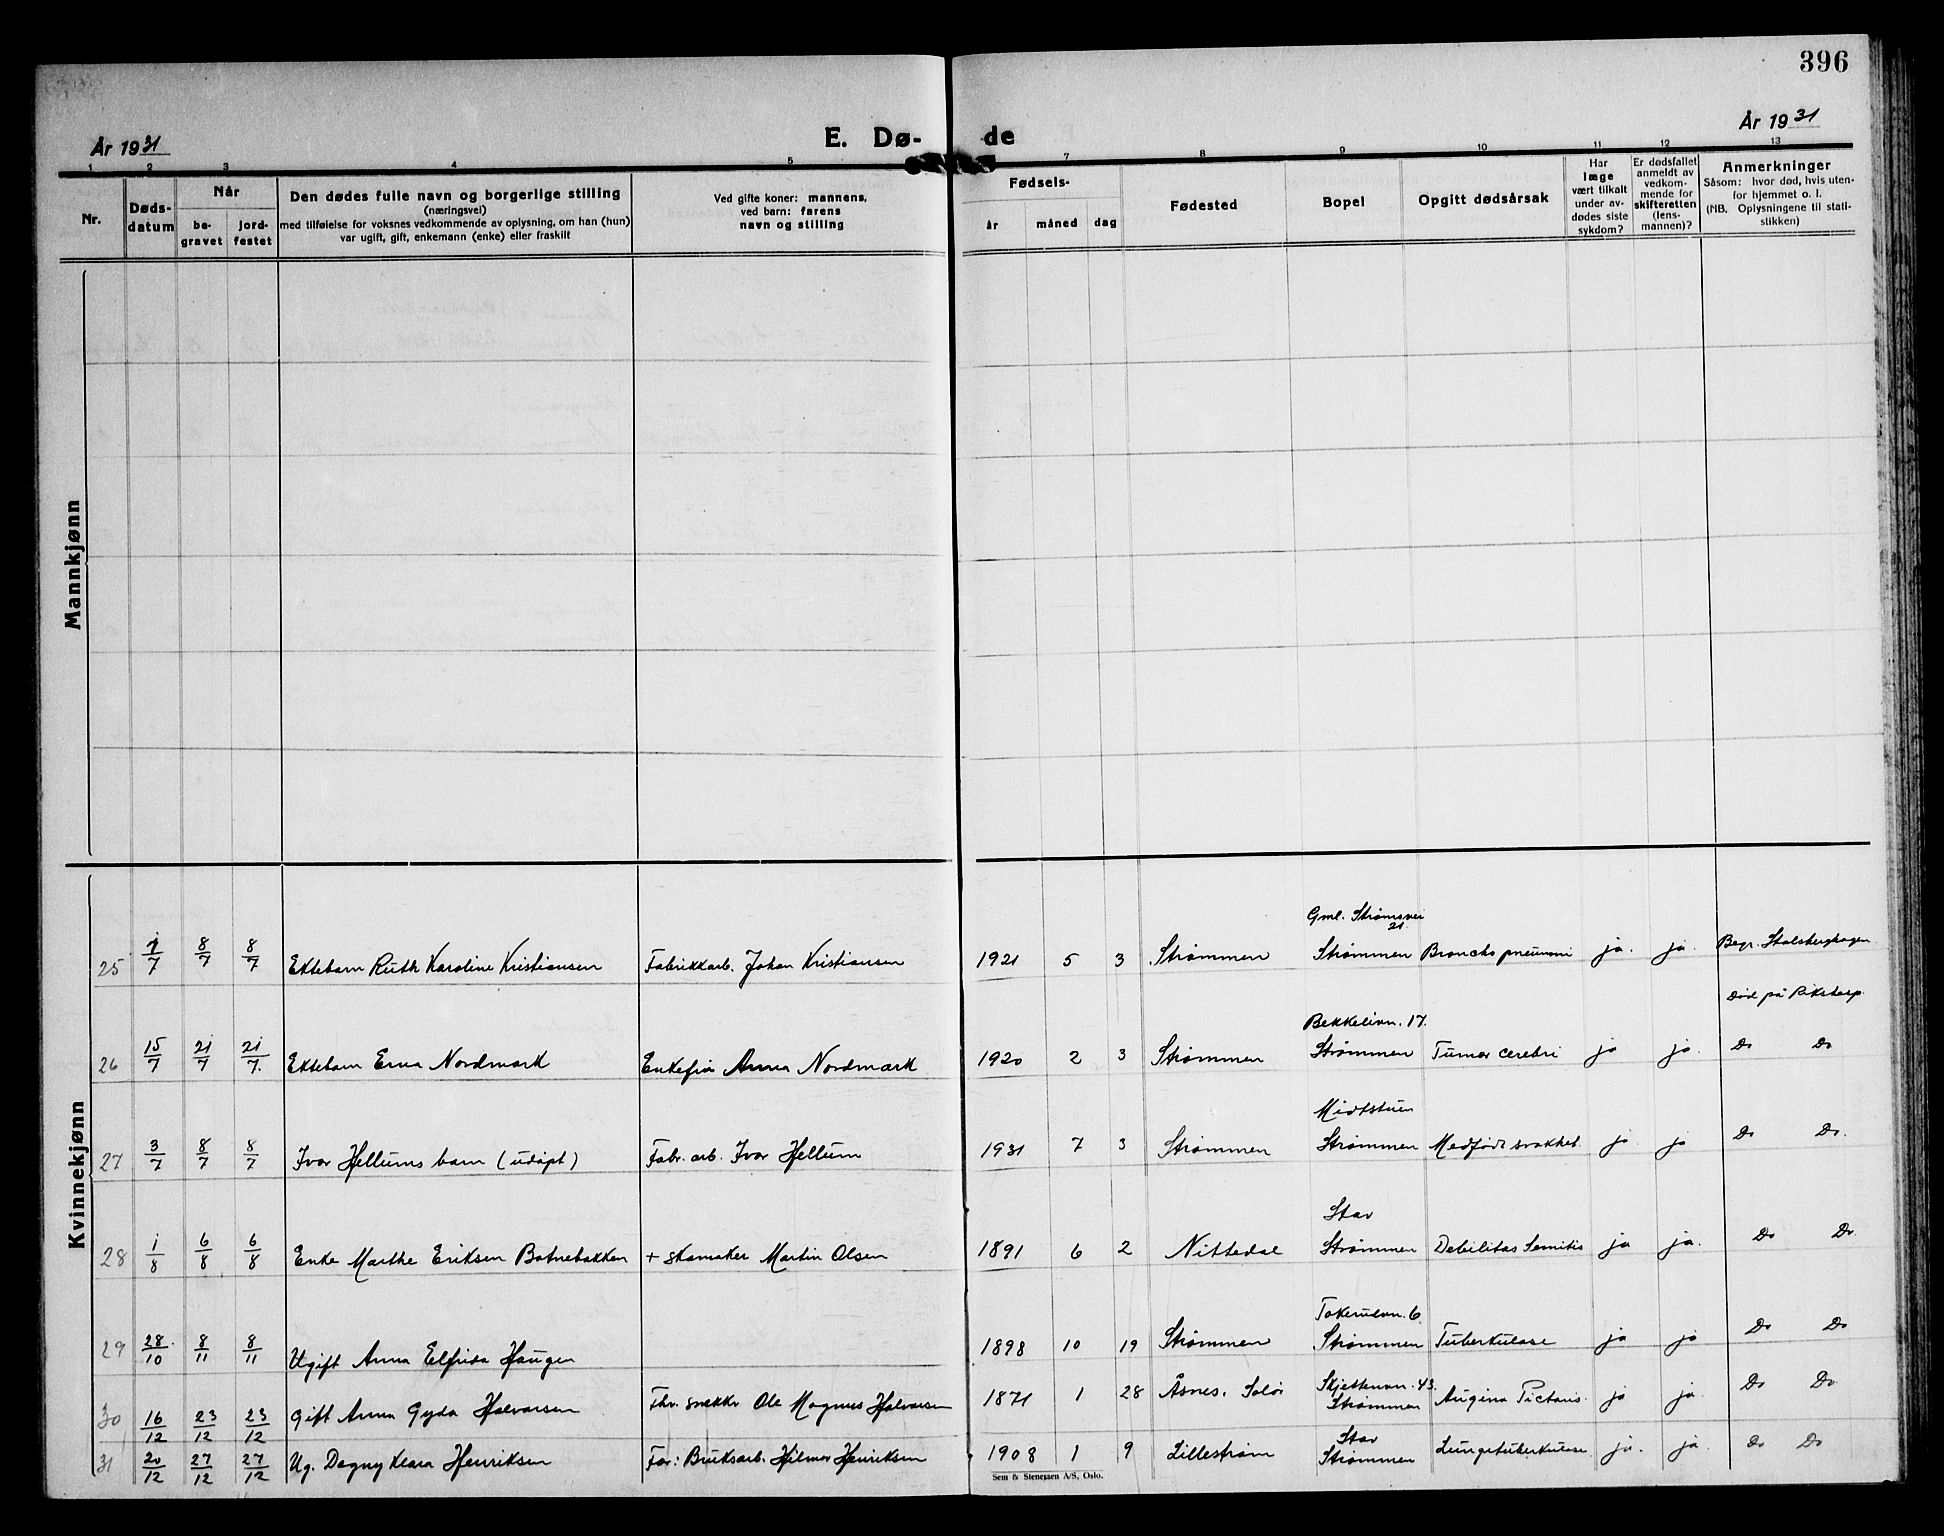 396
År 1931
E. Dø-
de
År 1931
1 2 3 4 5 7 8 9 10 11 12 13
Nr.
Døds-
datum
Når
be-
gravet
jord-
festet
Den dødes fulle navn og borgerlige stilling
(næringsvei)
med tilføielse for voksnes vedkommende av oplysning, om han (hun)
var ugift, gift, enkemann (enke) eller fraskilt
Ved gifte koner: mannens,
ved barn: farens
navn og stilling
Fødsels-
år måned dag
Fødested
Bopel
Opgitt dødsårsak
Har
læge
vært tilkalt
under av-
dødes siste
sykdom?
Er dødsfallet
anmeldt av
vedkom-
mende for
skifteretten
(lens-
mannen)?
Anmerkninger
Såsom: hvor død, hvis uten-
for hjemmet o. l.
(NB. Oplysningene til stati-
stikken)
Mannkjønn
Kvinnekjønn
Gml. Strømsvei
21
25 1/7 8/7 8/7 Ektebarn Ruth Karoline Kristiansen Fabrikkarb. Johan Kristiansen 1921 5 3 Strømmen Strømmen Broncho pneumoni ja. ja. Begr. Stalsberghagen
Død på Rikshosp.
Bekkelivn. 17.
26 15/7 21/7 21/7. Ektebarn Erna Nordmark Enkefru Anna Nordmark 1920 2 3 Strømmen Strømmen Tumor cerebri ja ja. Do Do
Midtstuen
27 3/7 8/7 8/7 Ivar Hellums barn (udøpt) Fabr. arb. Ivar Hellum 1931 7 3 Strømmen Strømmen Medfødt svakhet. ja ja Do Do.
Stav
28 1/8 6/8 6/8 Enke Marthe Eriksen Botnebakken + skomaker Martin Olsen 1891 6 2 Nittedal Strømmen Debilitas ja ja. Do Do.
6.
29 28/10 8/11 8/11 Ugift Anna Elfrida Haugen 1898 10 19 Strømmen Strømmen Tuberkulose ja ja Do Do
Skjettenvn. 43.
30 16/12 23/12 23/12 Gift Anna Gyda Halvorsen Ole Magnus Halvorsen 1871 1 28 Åsnes. Solør Strømmen Angina Pictoris ja ja. Do Do
Stav
31 20/12 27/12 27/12 Ug. Dagny Klara Henriksen Far: Bruksarb. Hilmar Henriksen 1908 1 9 Lillestrøm Strømmen Lungetuberkulose ja. ja. Do Do
Sem & Stenersen A/S, Oslo.